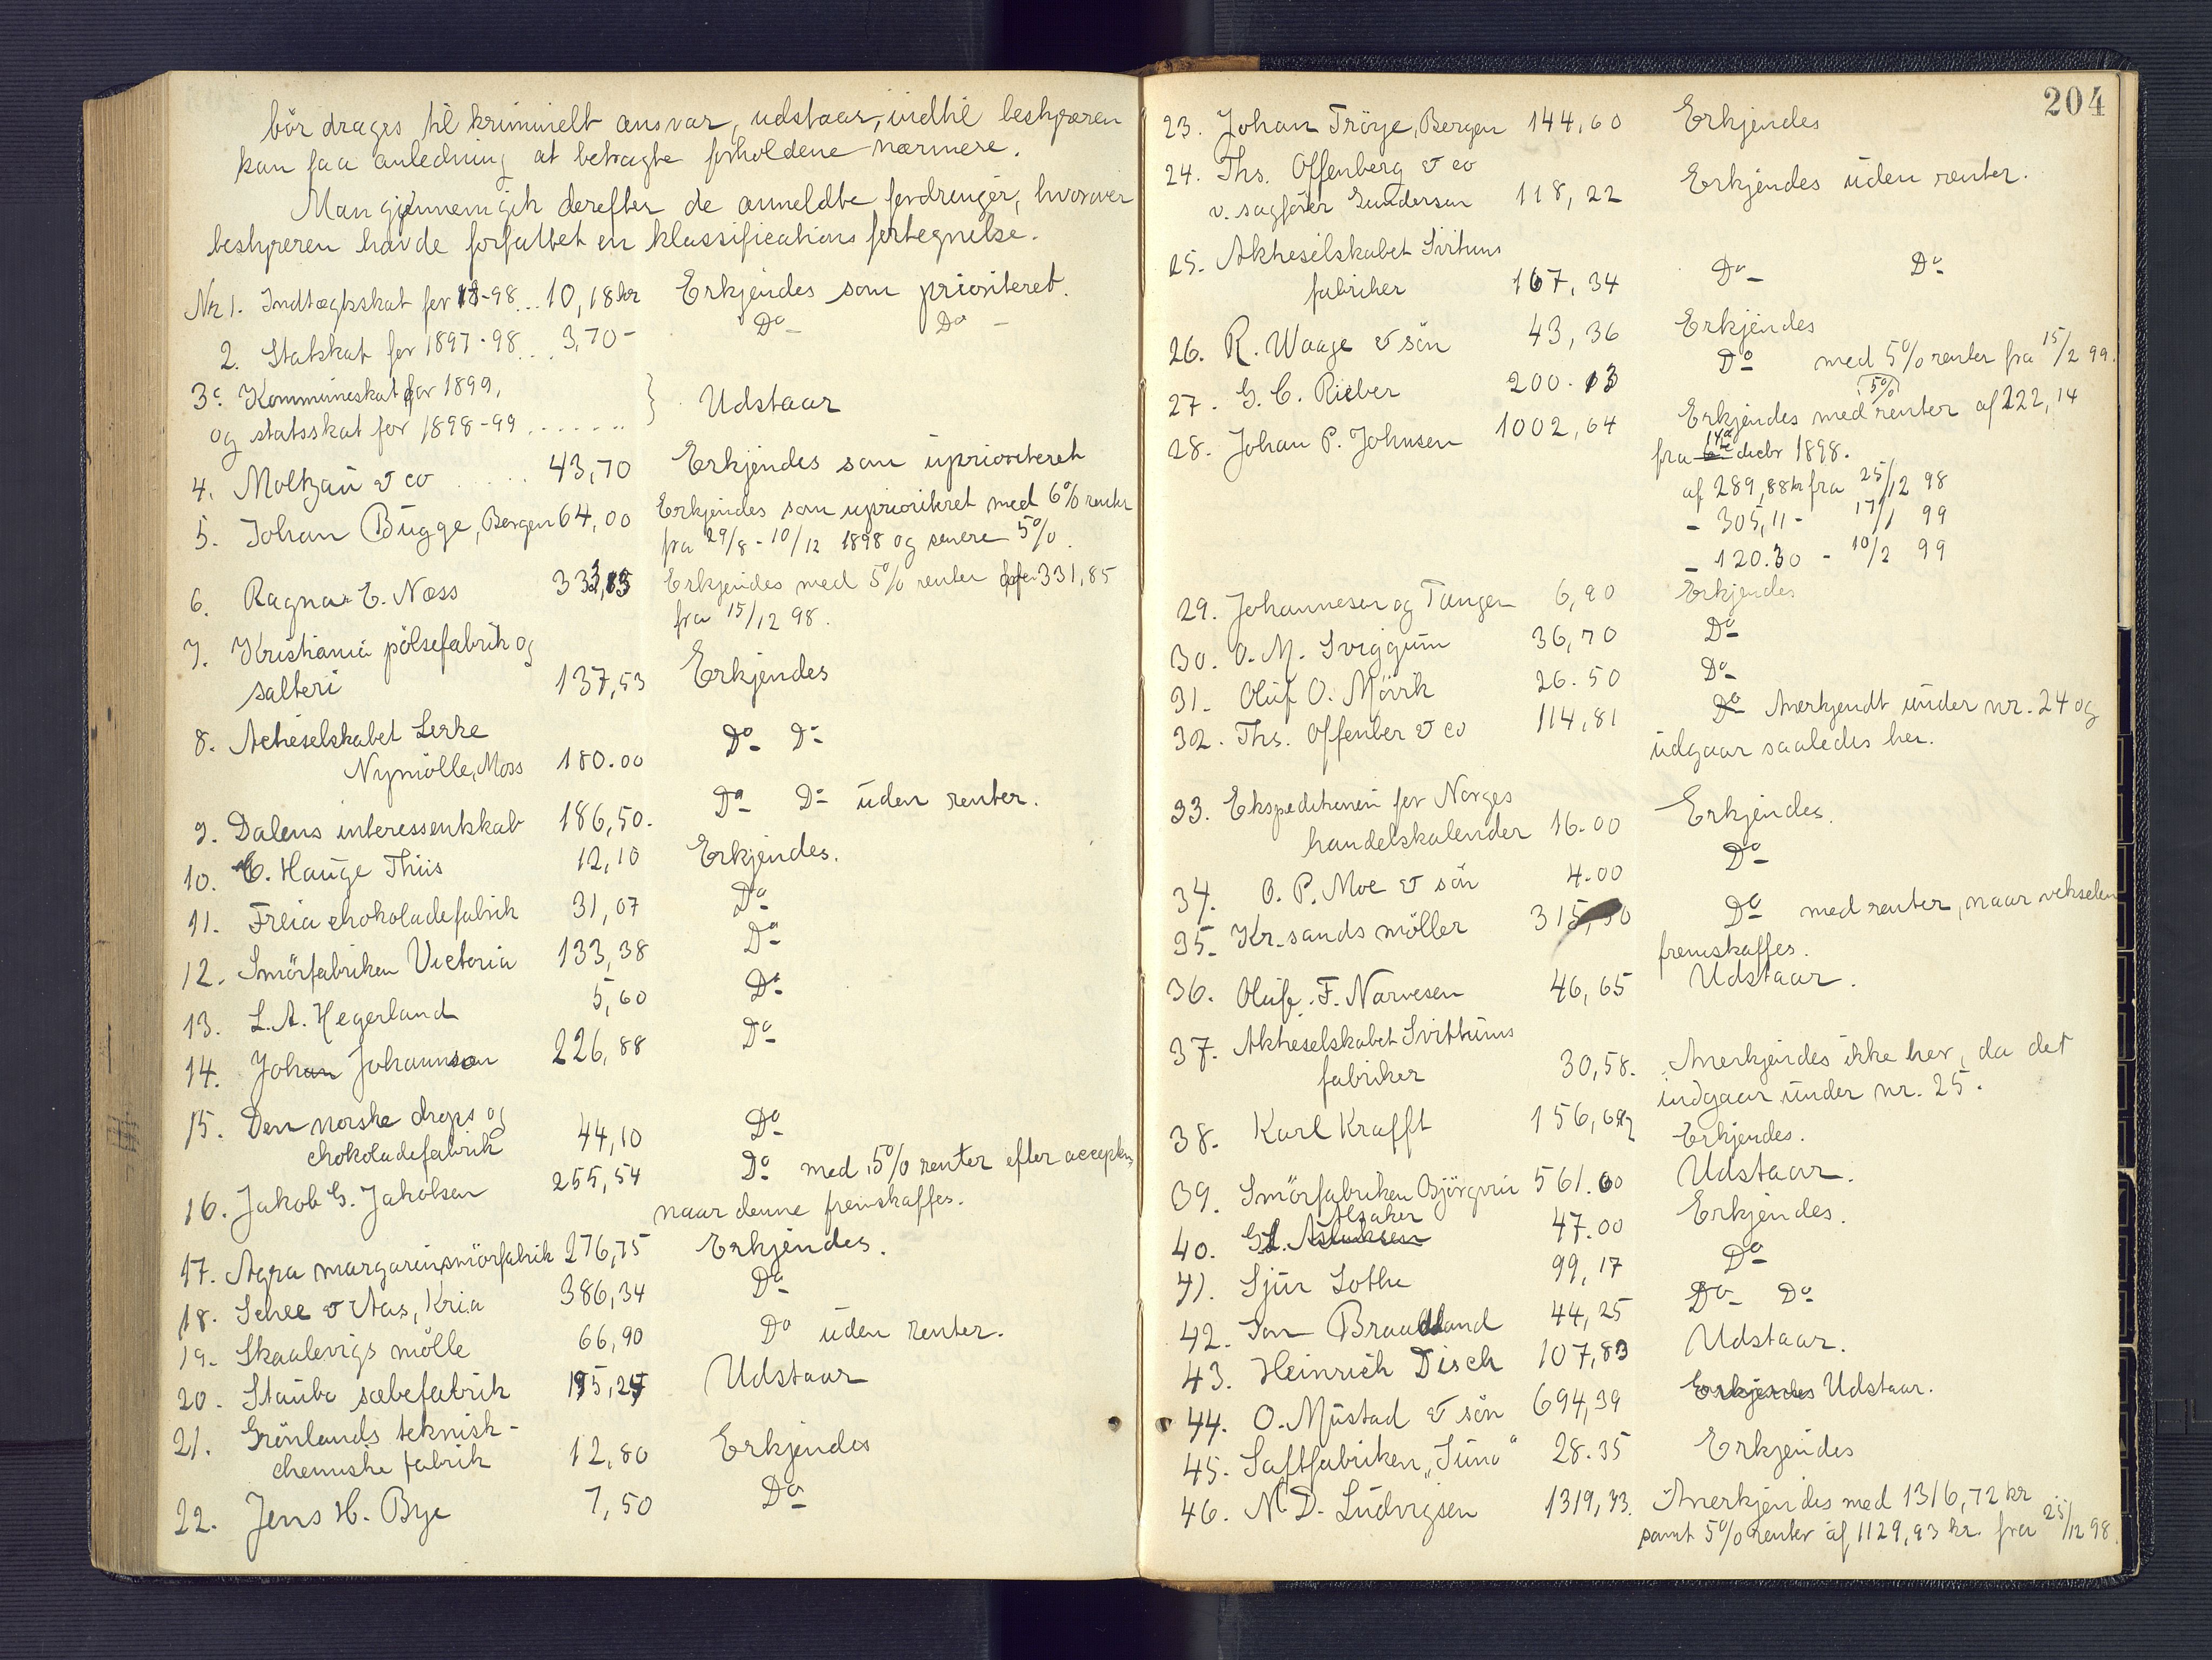 bör drages til kriminelt ansvar, udstaar, indtil bestyreren
kan faa anledning at betragte forholdene nærmere.
Man gjennemgik derefter de anmeldte fordringer, hvorover
bestyreren havde forfattet en klassifications fortegnelse.
Nr 1. Indtægtsskat for 17-98... 10,18 kr Erkjendes som prioriteret.
2. Statskat for 1897-98... 3,70 - Do - Do -
3. Kommuneskat for 1899,
og statsskat for 1898-99 ....... } Udstaar
4. Moltzau & co ..... 43,70 Erkjendes som uprioriteret
5. Johan Bügge, Bergen 64,00 Erkjendes som uprioriteret med 6% renter
fra 29/8 - 10/12 1898 og senere 5%.
6. Ragnar E. Næss 333,85 Erkjendes med 5% renter 331,85
fra 15/12 98.
7. Kristiania pölsefabrik og
salteri 137,53 Erkjendes
8. Actieselskabet Lerke
Nymölle, Moss 180.00 Do - Do -
9. Dalens interessentskab 186,50. Do - Do - uden renter.
10. C. Hauge Thiis 12,10 Erkjendes.
11. Freia chokoladefabrik 31,07 Do
12. Smörfabriken Victoria 133,38 Do
13. L. A. Hegerland 5,60 Do
14. Johan Johannsen 226,88 Do
15. Den norske drops og
chokoladefabrik 44,10 Do
16. Jakob G. Jakobsen 255,54 Do med 5% renter efter accepten,
naar denne fremskaffes.
17. Agra margarinsmörfabrik 276,75 Erkjendes.
18. Schee & Aas, Kria 386,34 Do
19. Skaalevigs mölle 66,90 Do uden renter.
20. Staubo sæbefabrik 195,27 Udstaar
21. Grönlands teknisk-
chemiske fabrik 12,80 Erkjendes
22. Jens H. Bye 7,50 Do
204
23. Johan Tröye, Bergen 144,60 Erkjendes
24. Ths. Offenberg & co
v. sagförer Gundersen 118,22 Erkjendes uden renter.
25. Aktieselskabet Svithuns
fabriker 167,34 Do - Do -
26. R. Waage & sön 43,36 Erkjendes
27. G. C. Rieber 200.13 Do med 5% renter fra 15/2 99.
28. Johan P. Johnsen 1002,64 Erkjendes med 5% renter af 222,14
fra 14de decbr 1898.
af 289,88 kr fra 25/12 98
- 305,11 - 17/1 99
- 120.30 - 10/2 99
29. Johannesen og Tangen 6,90 Erkjendes
30. O. M. Sviggum 36,70 Do
31. Oluf O. Mövik 26.50 Do
32. Ths. Offenber & co 114,81 Do Anerkjendt under nr. 24 og
udgaar saaledes her.
33. Ekspeditionen for Norges
handelskalender 16.00 Erkjendes.
34. O. P. Moe & sön 4.00 Do
35. Kr.sands möller 315,30 Do med renter, naar vekselen
fremskaffes.
36. Oluf F. Narvesen 46,65 Udstaar.
37. Aktieselskabet Svithuns
fabriker 30,58. Anerkjendes ikke her, da det
indgaar under nr. 25.
38. Karl Krafft 156, Erkjendes.
39. Smörfabriken Björgvin 561.00 Udstaar.
40. G. A. Alsaker 47.00 Erkjendes.
41. Sjur Lothe 99,17 Do
42. Jon Braadland 44,25 Do - Do
43. Heinrich Disch 107,83 Udstaar.
44. O. Mustad & sön 694,39 Erkjendes Udstaar.
45. Saftfabriken "Juno" 28.35 Erkjendes
46. N. D. Ludvigsen 1319,33. Anerkjendes med 1316,72 kr
samt 5% renter af 1129,93 kr. fra 25/12 98